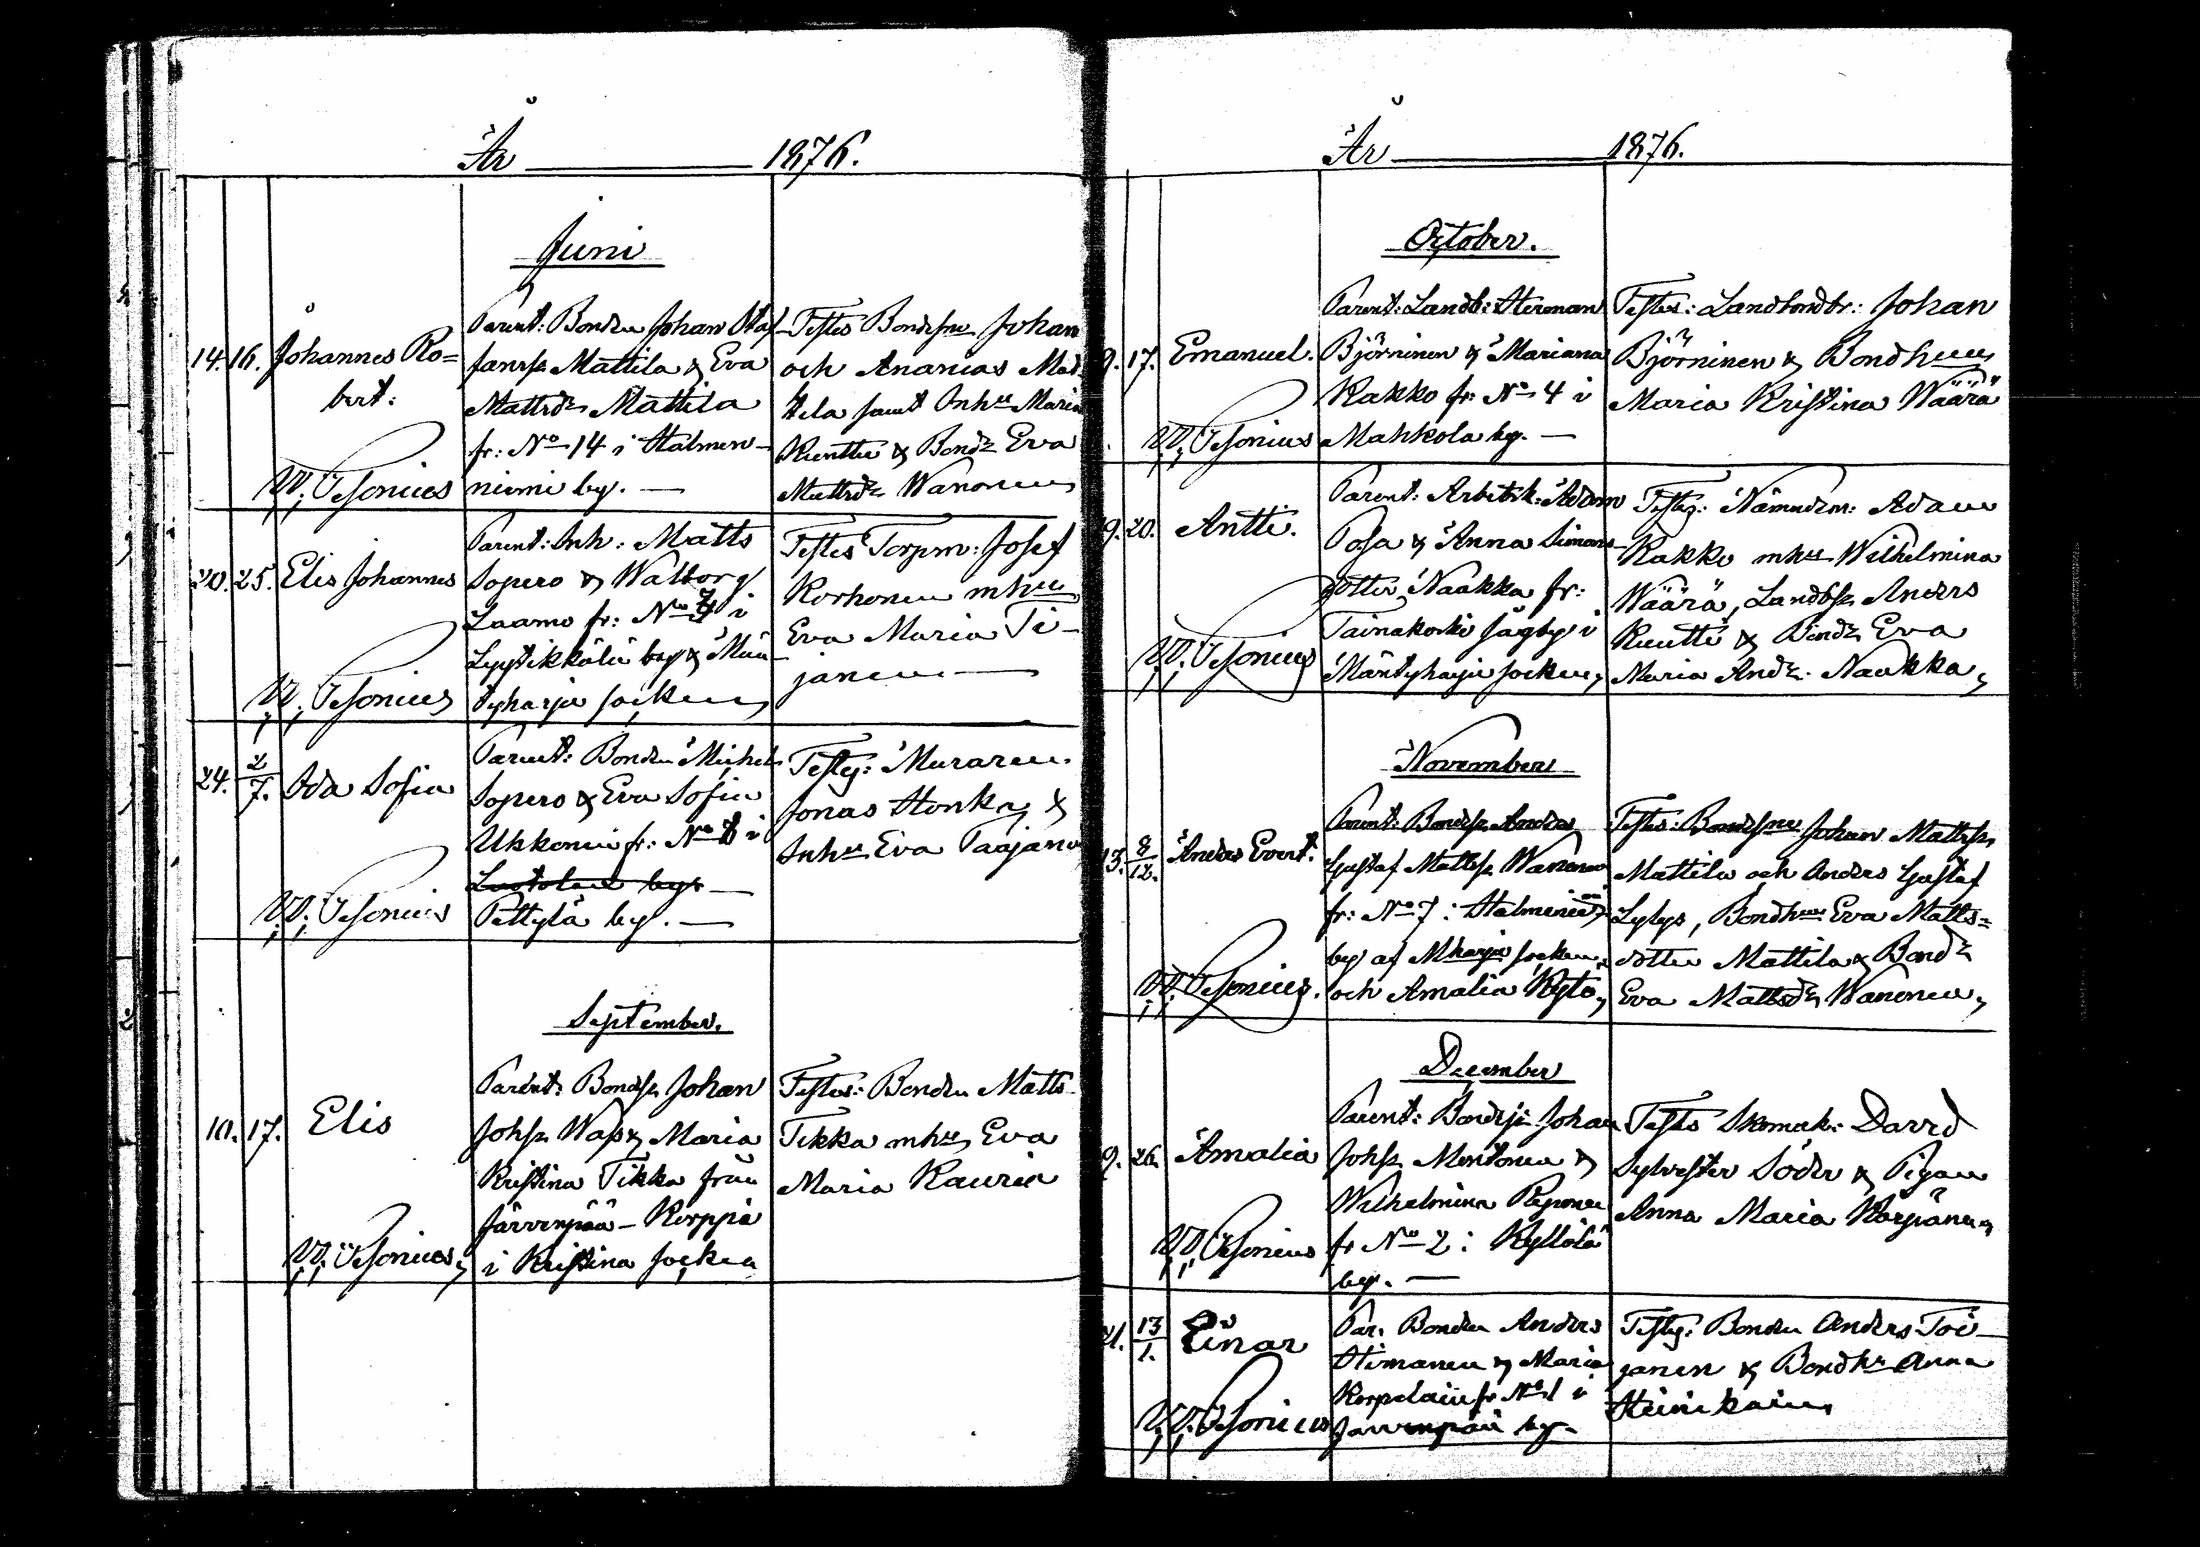 År 1876.
Juni
14. 16. Johannes Ro=
bert.
Parent: Bonden Johan Staf
fanss. Mattila & Eva
Mattsdr Mattila
fr: No 14 i Halmen-
niemi by. —
Testes Bondesne Johan
och Ananias Mat
tila samt Inhu Maria
Kuutti & Bondr Eva
Mattsdr Wanonen
W. Pesonius
20. 25. Elis Johannes
Parent: Inh: Matts
Sopero & Walborg
Laamo fr: No 7 i
Lyytikkälä by & Män
tyharju socken
Testes Torpm: Josef
Korhonen mhu
Eva Maria Ti-
janen —
W. Pesonius
24. 2/7. Ida Sofia
Parent: Bonden Michel
Sopero & Eva Sofia
Ukkonen fr: No 8 i
by
Pettylä by. —
Testes: Muraren
Jonas Honka &
Inhu Eva Taajanen
W. Pesonius
September.
10. 17. Elis
Parent: Bondes. Johan
Johss. Wass & Maria
Kristina Tikka från
Järvenpää-Korppi
i Kristina socken
Testes: Bonden Matts
Tikka mhu Eva
Maria Kauria
W. Pesonius
År 1876.
October.
9. 17. Emanuel.
Parent: Landb: Herman
Björninen & Mariana
Kakko fr: No 4 i
Mahkola by. —
Testes: Landbondbr: Johan
Björninen & Bondhun
Maria Kristina Wäärä
W. Pesonius
9. 20. Antti.
Parent: Arbetsk: Adam
Posa & Anna Simons
dotter Naakka fr:
Tainakoski sågby i
Mäntyharju socken
Testes: Nämndm: Adam
Kakko mhu Wilhelmina
Wäärä, Landbs. Anders
Kuutti & Bondr Eva
Maria Andr. Naakka
W. Pesonius
November
13. 8/12. Anders Evert.
Parent: Bondes. Anders
Gustaf Mattss. Wanonen
fr: No 7 i Halmeniemi
by af Mharju socken
och Amalia Kytö
Testes: Bondesne Johan Mattss.
Mattila och Anders Gustaf
Lylys, Bondhun Eva Matts=
dotter Mattila & Bondr
Eva Mattsdr Wanonen
W. Pesonius.
December
9. 26. Amalia
Parent: Bondes. Johan
Johss. Montonen &
Wilhelmina Reponen
fr No 2 i Kyllölä
by. —
Testes Skomak: David
Sylvester Söder & Pigan
Anna Maria Karpanen
W. Pesonius
21. 13/1. Einar
Par. Bonden Anders
Himanen & Maria
Korpelain fr No 1 i
Järvenpää by.
Testes: Bonden Anders Toi-
janen & Bondhu Anna
Heinikain
W. Pesonius